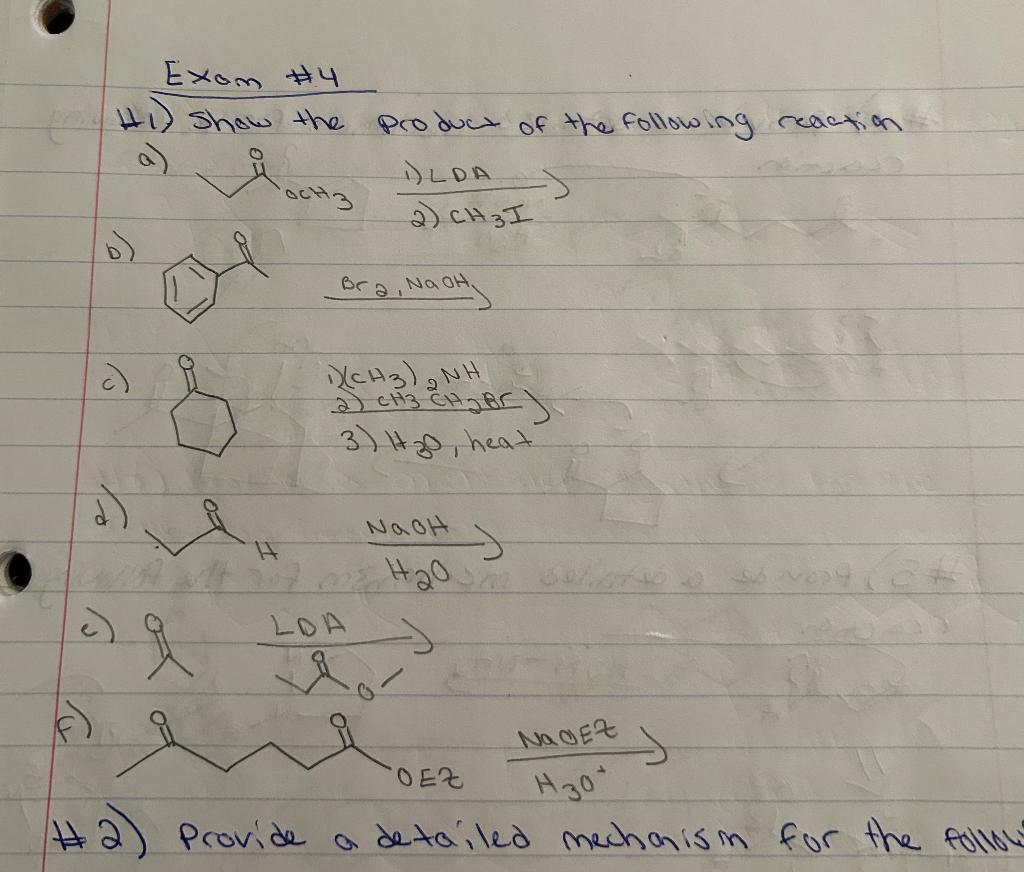 Exam #4
#1) Show the product of the following reaction
a) O OCH3 1) LDA
2) CH3I
b) O Br2, NaOH
c) O 1) (CH3)2NH
2) CH3CH2Br
3) H3O, heat
d) O H NaOH
H2O
e) O LDA
O O
f) O O OEZ NaOEZ
H3O+
#2) Provide a detailed mechanism for the follow